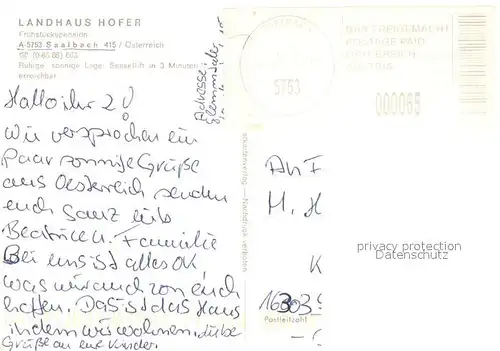 LANDHAUS HOFER
Frühstückspension
A-5753 Saalbach 415 / Österreich
Ruhige, sonnige Lage; Sessellift in 3 Minuten
erreichbar
Adresse:
BAR FREIGEMACHT
POSTAGE PAID
ÖSTERREICH
AUSTRIA
5753
000065
Hallo ihr 2!
Wie versprochen ein
Paar sonnige Grüße
aus Oesterreich senden
euch ganz lieb
Beatrice u. Familie
Bei uns ist alles OK,
was wir auch von euch
hoffen. Das ist das Haus
indem wir wohnen, liebe
Grüße an eure Kinder.
Nachdruck verboten
An F
M. H
K
Postleitzahl
privacy protection
Datenschutz